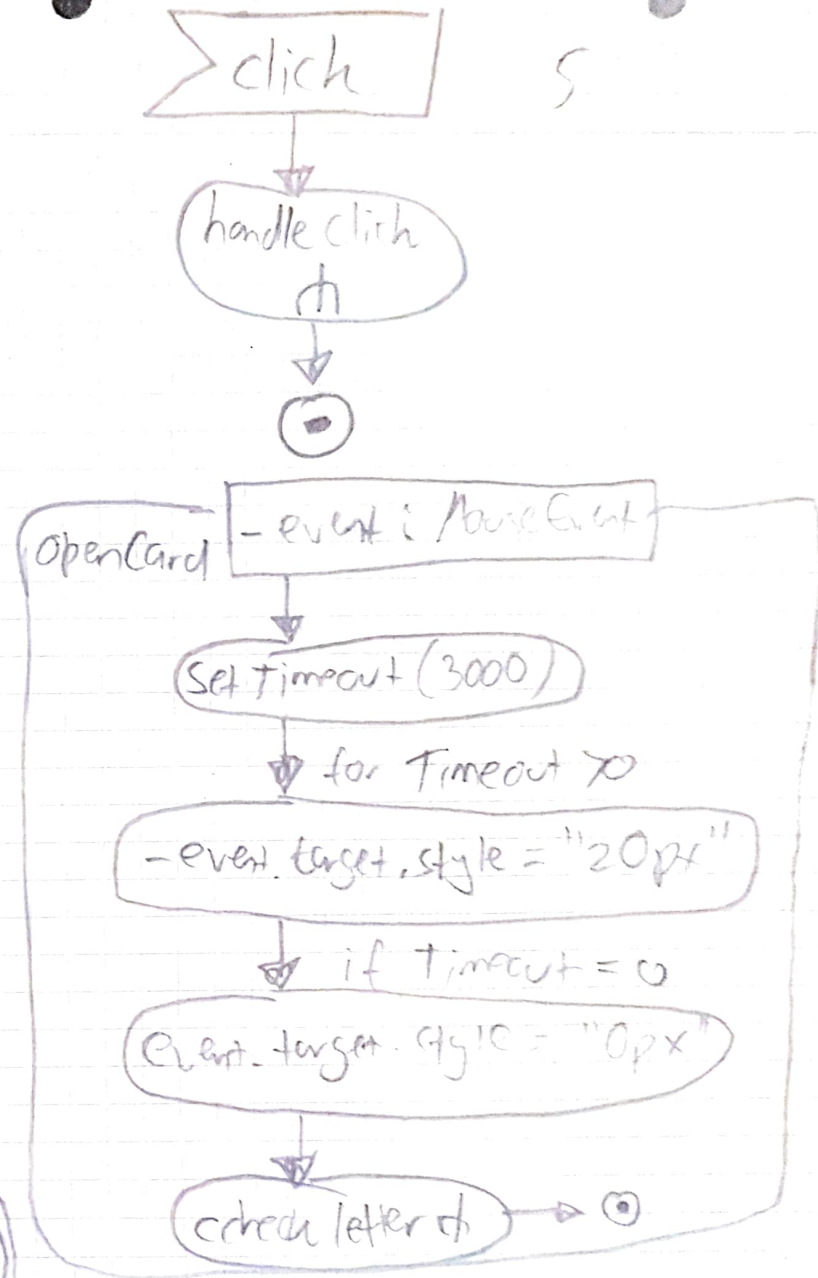 click
5
handle Click
openCard
- event : MouseEvent
setTimeout (3000)
for Timeout >0
- event.target.style = "20px"
if Timeout = 0
event.target.style = "0px"
check letter